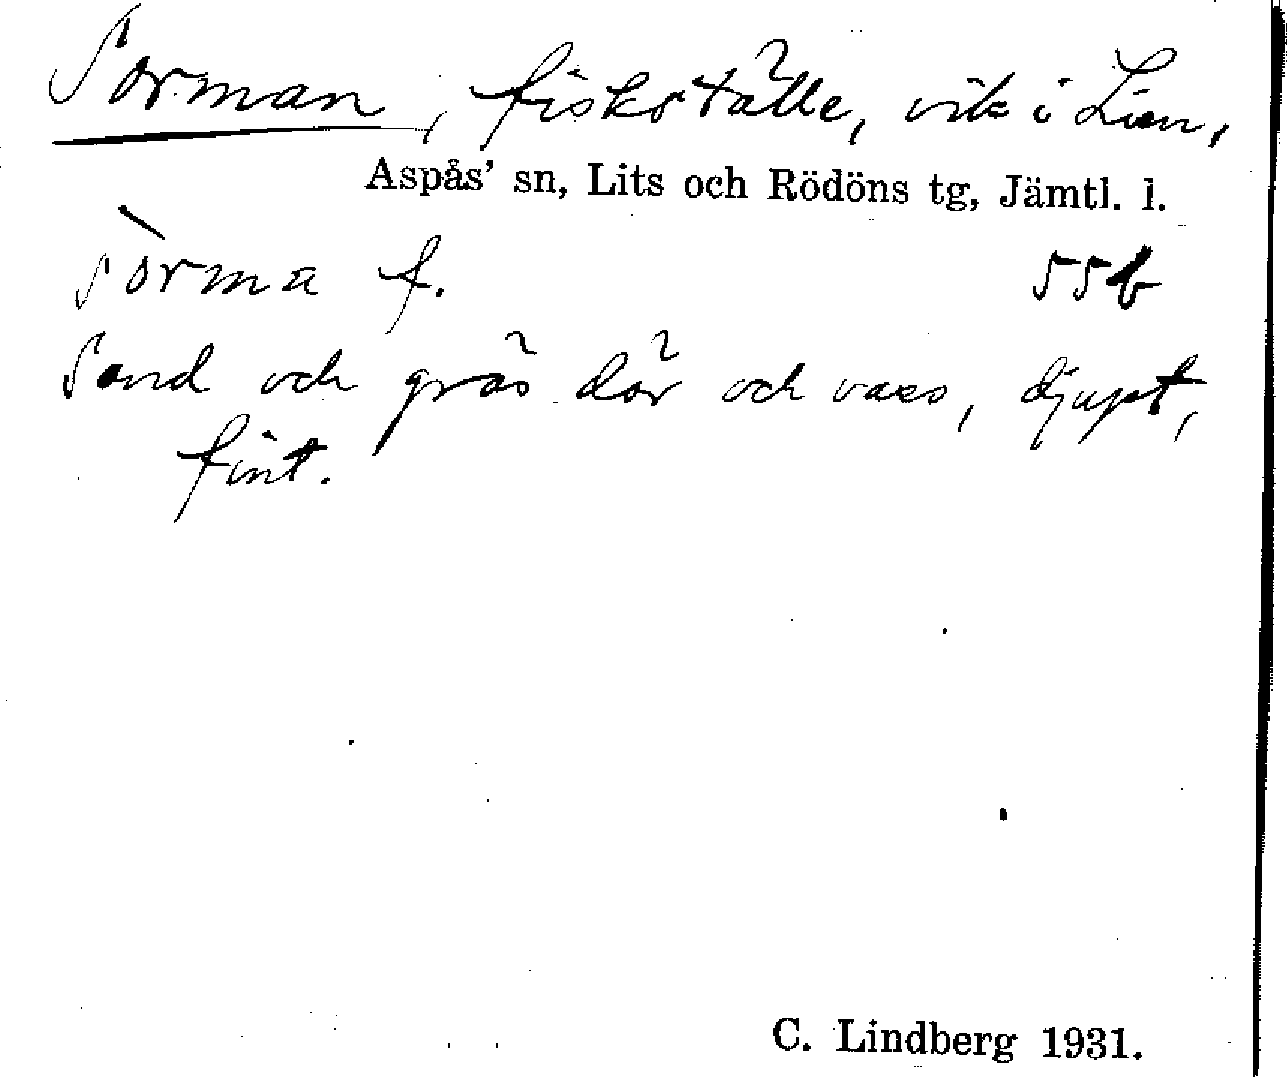 Sorman, fiskställe, vik i Lien,
Aspås' sn, Lits och Rödöns tg, Jämtl. l.
sòrma f. 55b
Sand och gräs där och vass, djupt,
fint.
C. Lindberg 1931.